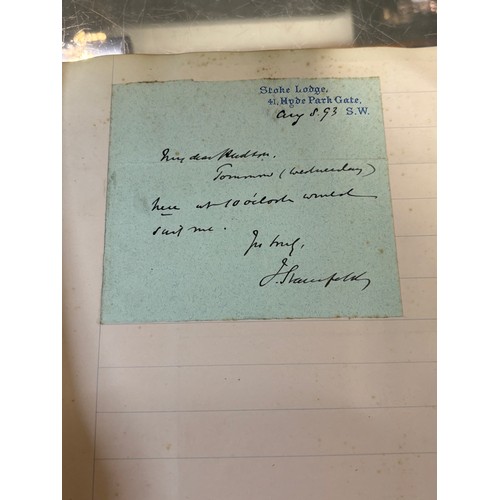 Stoke Lodge,
41, Hyde Park Gate,
Aug 8. 93 S.W.
My dear Hudson.
Tomorrow (Wednesday)
here at 10 o'clock would
suit me.
Yrs truly,